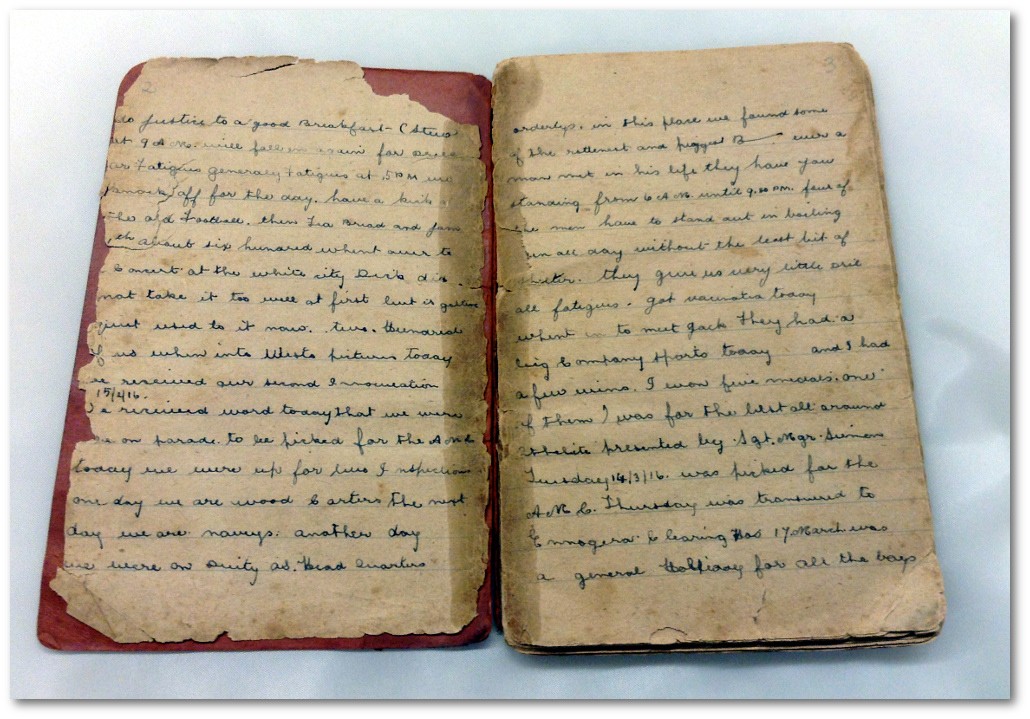 2
do justice to a good Breakfast - (Stew
at 9 A.M. will fall in again for Drill
or Fatigues generaly Fatigues at 5 PM we
knock off for the day. have a kick
the old Football. then Tea Bread and Jam
about six hundred whent over to
Concert at the white city did
not take it too well at first but is getting
quiet used to it now. two. Hundred
of us when into Wests pictures today
we received our second Innoculation
15/4/16.
We received word today that we were
on parade. to be picked for the A.M.C
today we were up for two Inspections
one day we are wood Carters the next
day we are navys. another day
we were on Duity as. Head Quarters
3
orderlys. in this place we found some
of the rottenest and biggest B—— ever a
man met in his life they have you
standing from 6 A.M. until 9.30 PM. few of
the men have to stand out in boiling
sun all day without the least bit of
shelter. they give us very little drill
all fatigues. got vacinated today
whent in to meet Jack They had a
big Company sports today and I had
a few wins. I won five medals. one
of them I was for the best all around
athelite presented by Sgt. Mgr. Simons
Tuesday 14/3/16. was picked for the
A.M.C. Thursday was transfered to
Ennogera Clearing Hos 17 March was
a general Holliday for all the boys